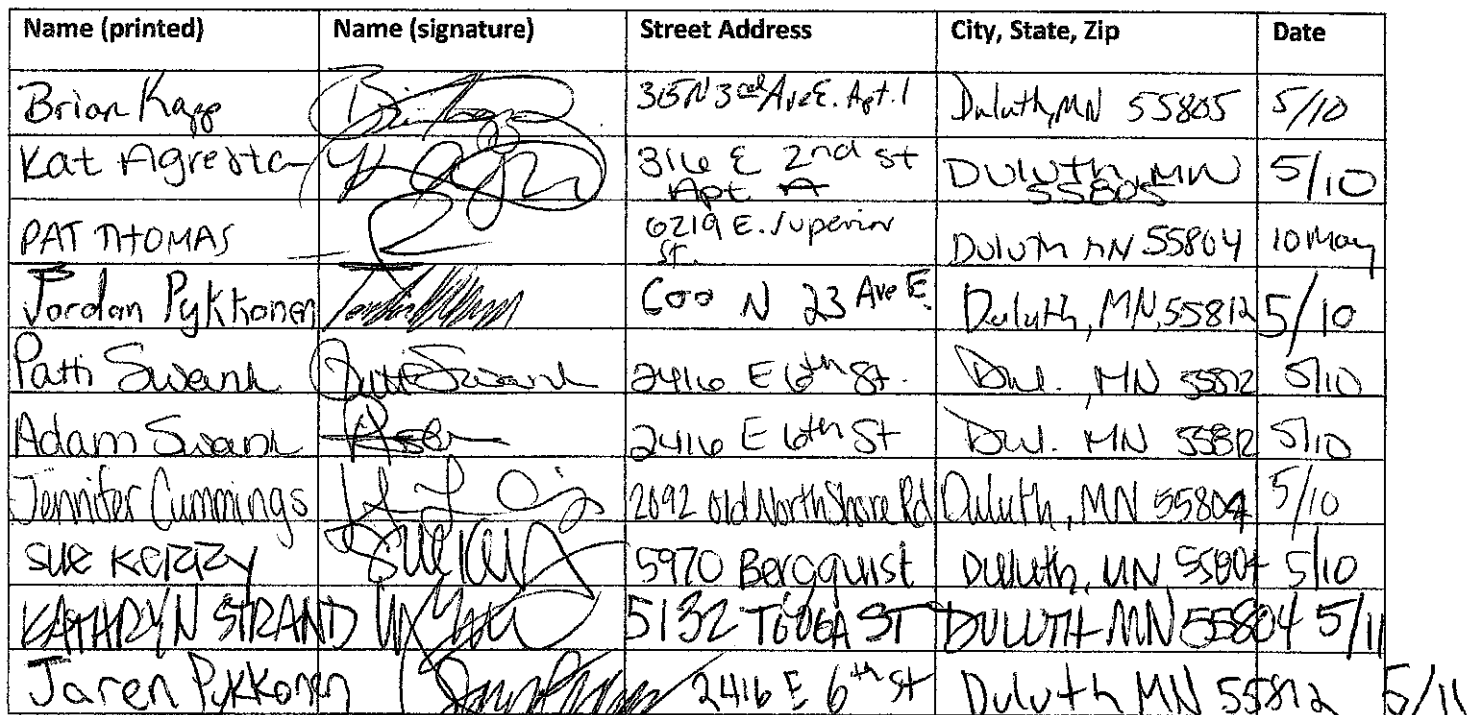 Name (printed) Name (signature) Street Address City, State, Zip Date
Brian Kapp 315 N 3rd Ave E. Apt. 1 Duluth, MN 55805 5/10
Kat Agresta 316 E 2nd St Duluth, MN 5/10
Apt A 55805
PAT THOMAS 6219 E. Superior Duluth MN 55804 10 May
St.
Jordan Pykkonen 600 N 23 Ave E. Duluth, MN, 55812 5/10
Patti Swank Patti Swank 2416 E 6th St. Dul. MN 55812 5/10
Adam Swank 2416 E 6th St Dul. MN 55812 5/10
Jennifer Cummings 2692 Old North Shore Rd Duluth, MN 55804 5/10
SUE KERRY 5970 Bergquist Duluth, MN 55804 5/10
KATHRYN STRAND 5132 TIOGA ST DULUTH MN 55804 5/11
Jaren Pykkonen 2416 E 6th St Duluth MN 55812 5/11